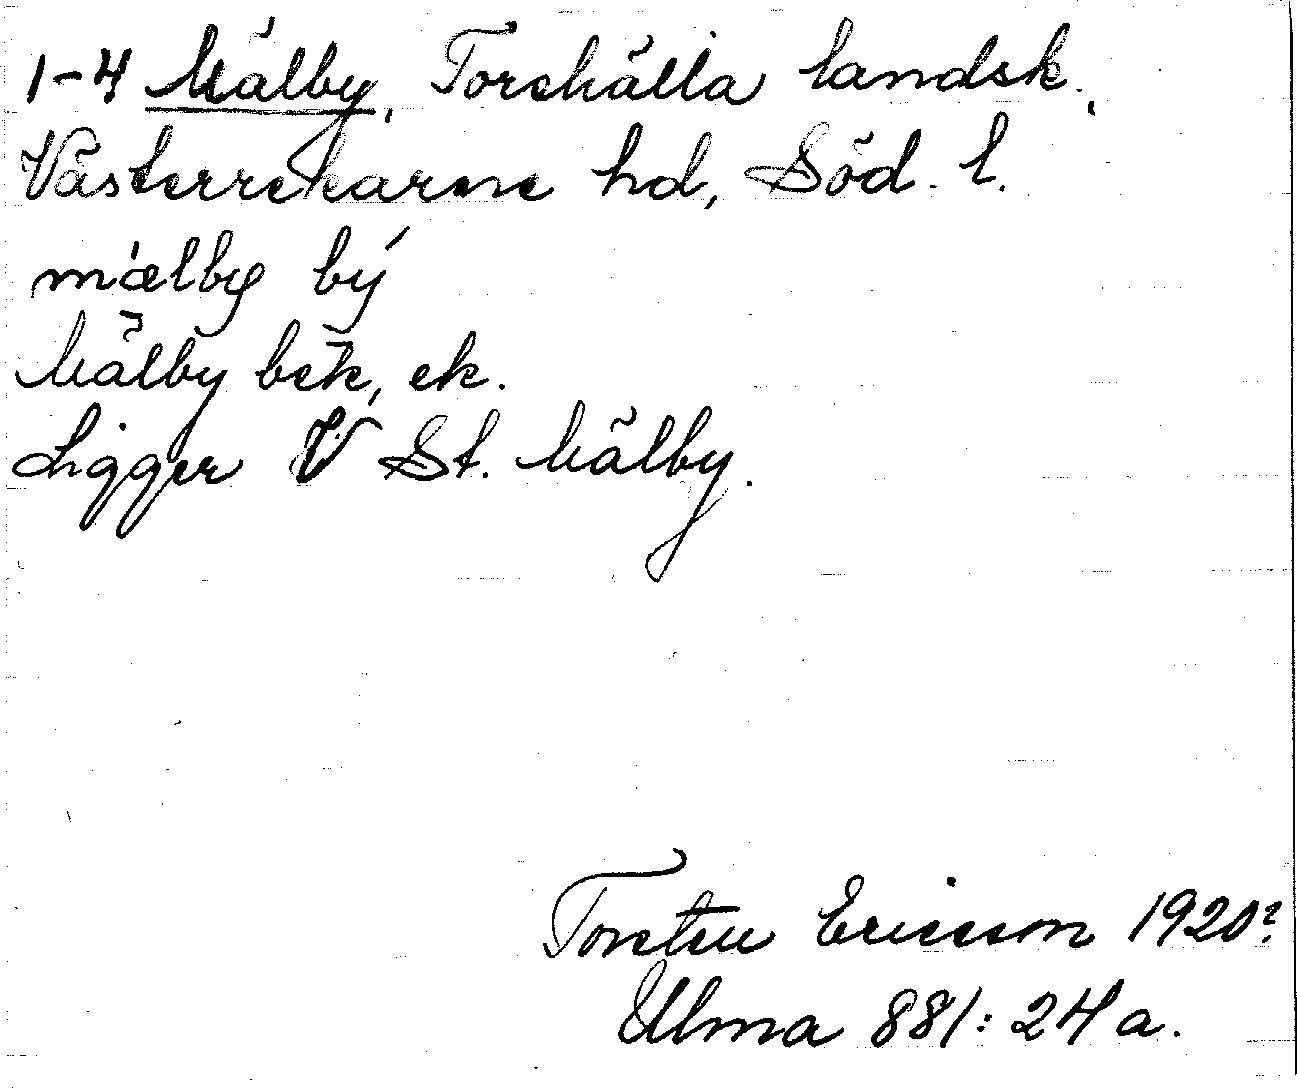 1-4 Mälby, Torshälla landsk.,
Västerrekarne hd, Söd. l.
mǽlby bý
Mälby bek, ek.
Ligger V St. Mälby.
Torsten Ericsson 1920?
Ulma 881:24a.